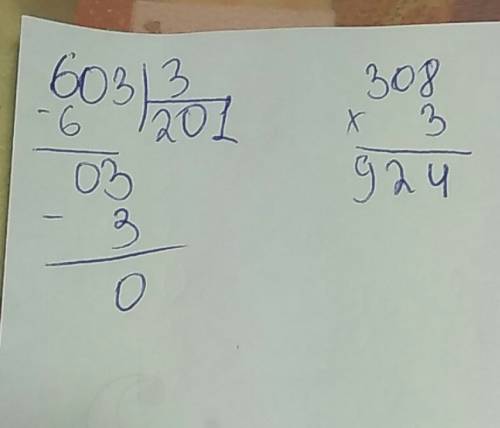 603 | 3
- 6 201
03
- 3
0
308
x 3
924